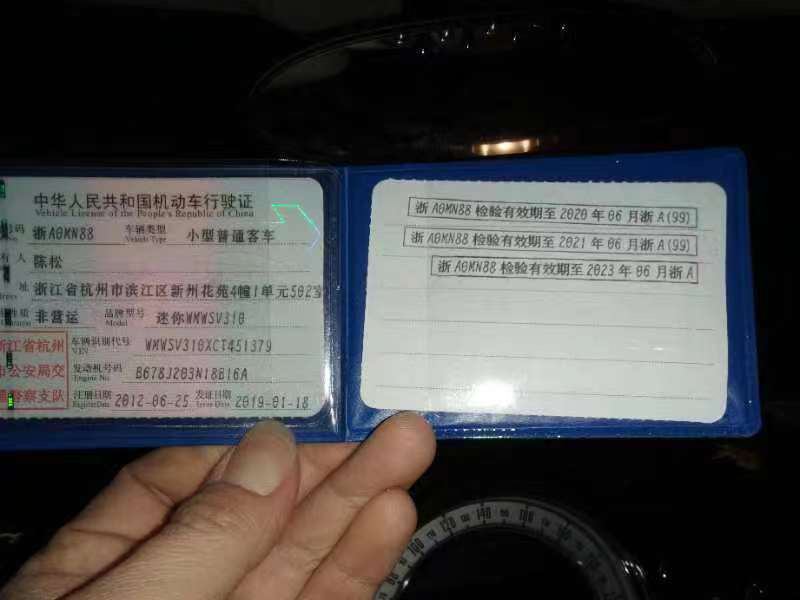 中华人民共和国机动车行驶证
Vehicle License of the People's Republic of China
号码 浙A0MN88 车辆类型 小型普通客车
Vehicle Type
有人 陈松
址 浙江省杭州市滨江区新州花苑4幢1单元502室
性质 非营运 品牌型号 迷你WMWSV310
Model
浙江省杭州
市公安局交
警察支队
车辆识别代号 WMWSV310XCT451379
VIN
发动机号码 B678J203N18B16A
Engine No.
注册日期 2012-06-25 发证日期 2019-01-18
Register Date Issue Date
浙A0MN88检验有效期至2020年06月浙A(99)
浙A0MN88检验有效期至2021年06月浙A(99)
浙A0MN88检验有效期至2023年06月浙A
80
90
100
120
140
160